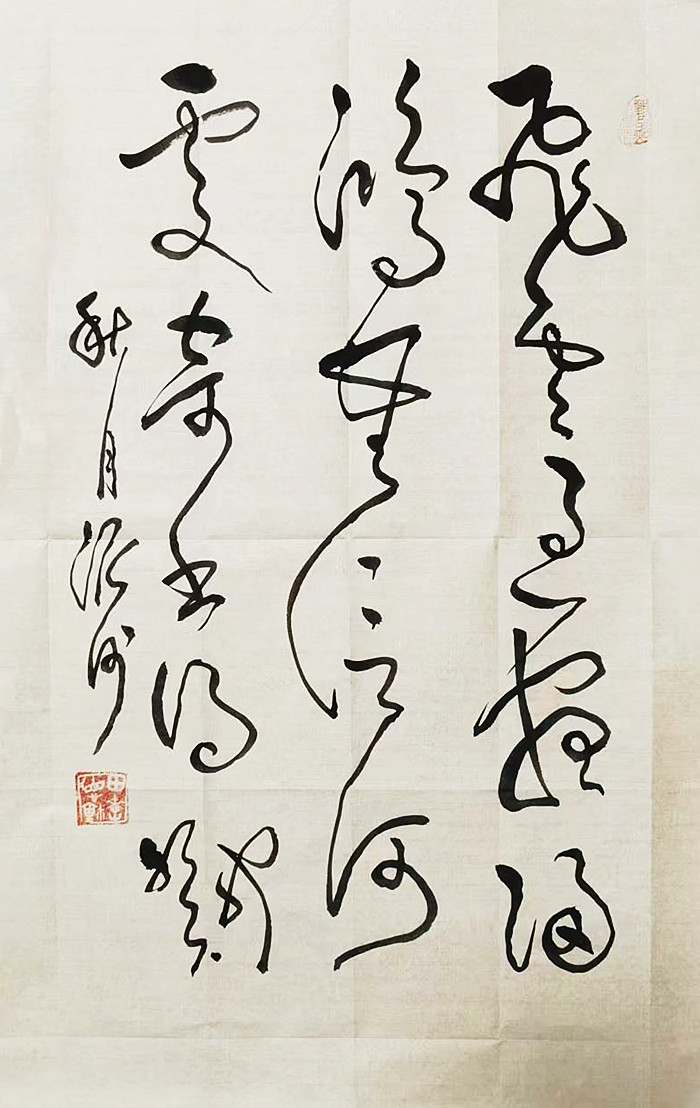 飛雲過盡歸
鴻無信何
處寄書得
秋月